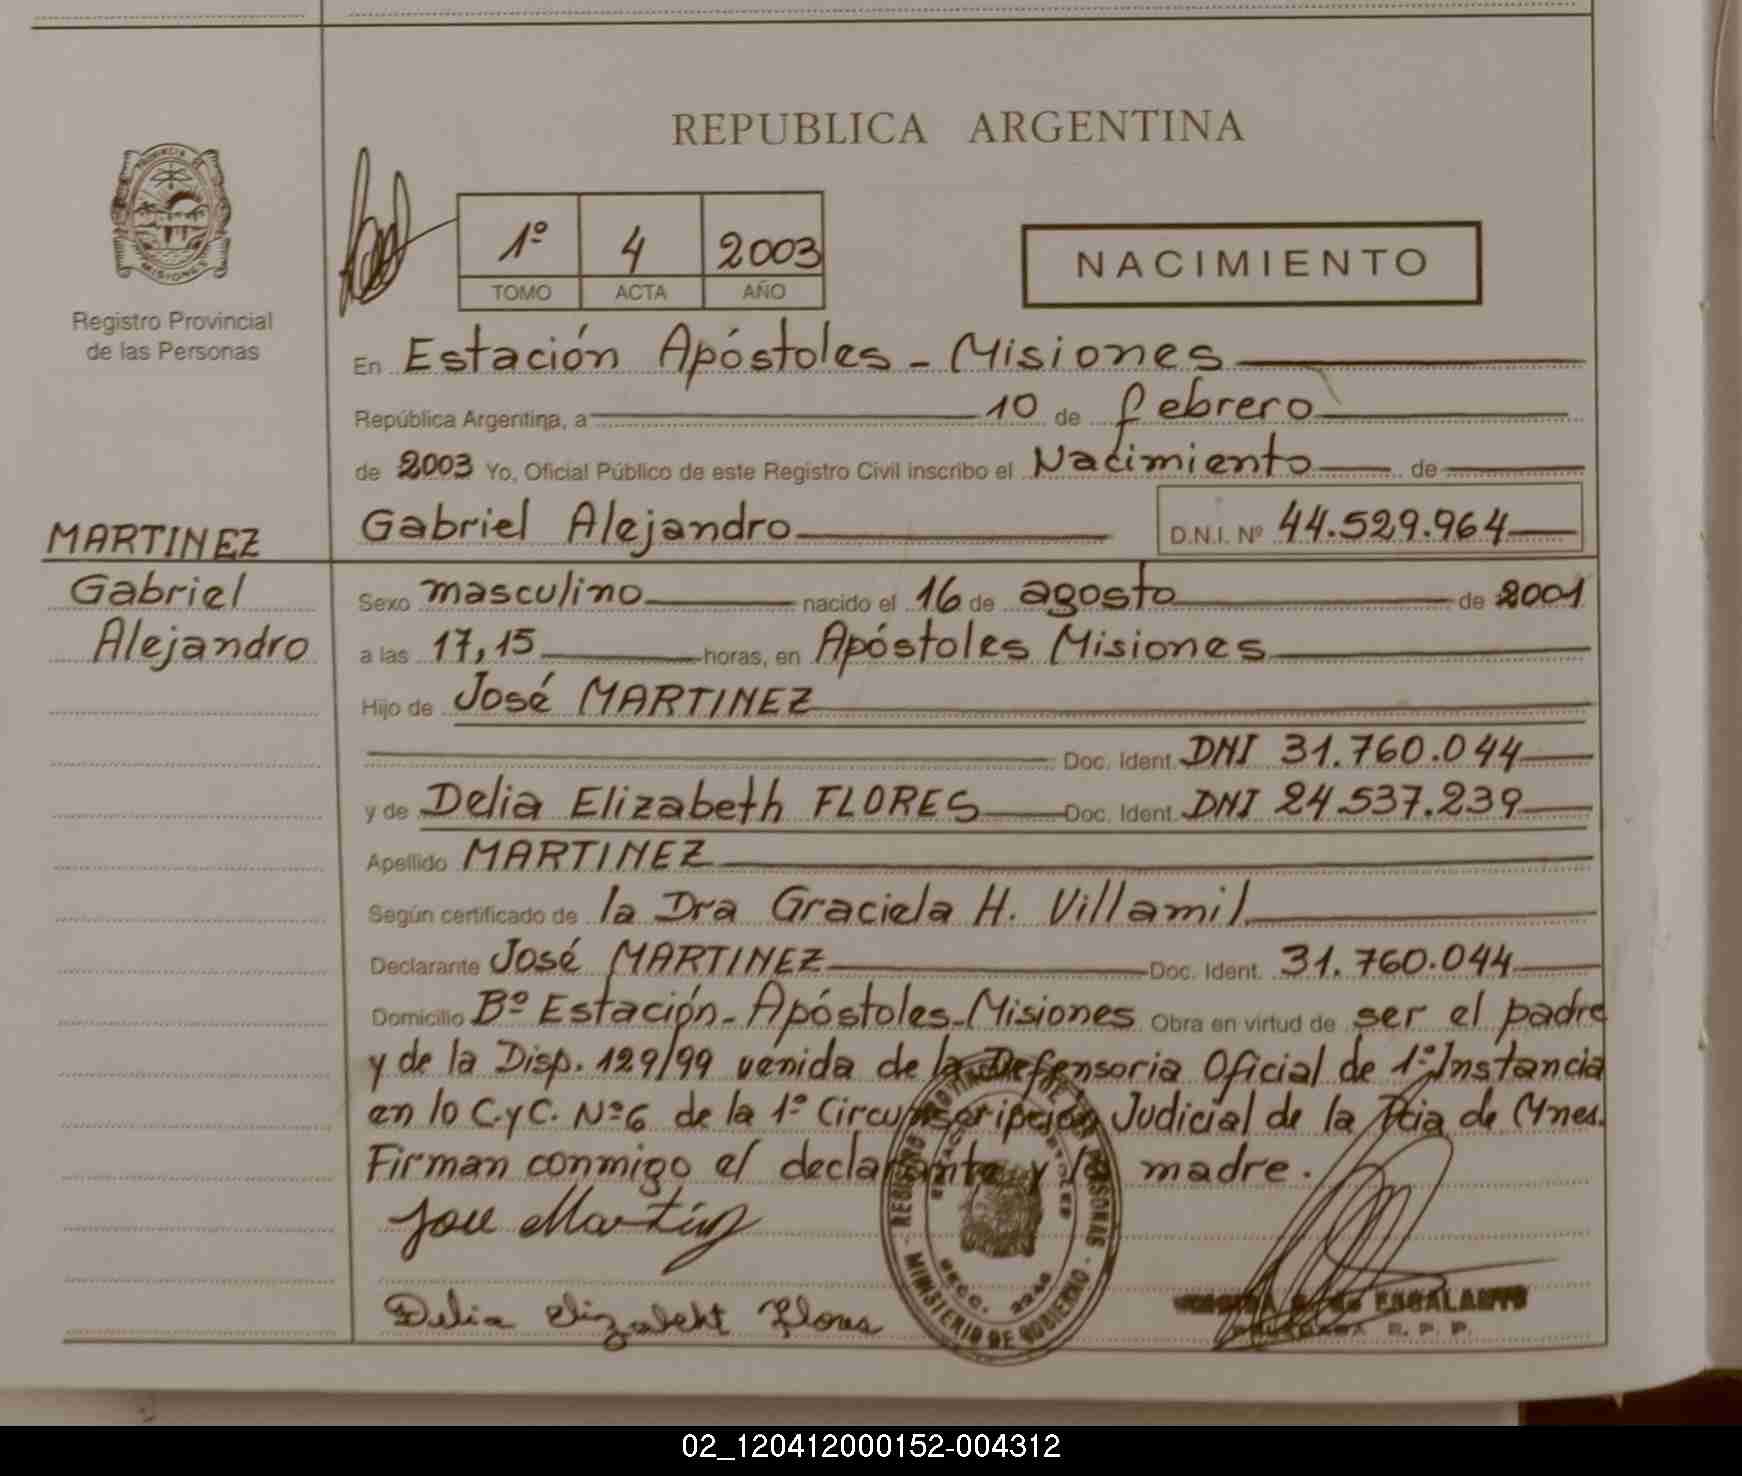 REPUBLICA ARGENTINA
PROVINCIA DE
MISIONES
Registro Provincial
de las Personas
1º 4 2003
TOMO ACTA AÑO
NACIMIENTO
En Estación Apóstoles - Misiones
República Argentina, a 10 de febrero
de 2003 Yo, Oficial Público de este Registro Civil inscribo el Nacimiento de
MARTINEZ
Gabriel
Alejandro
Gabriel Alejandro D.N.I. Nº 44.529.964
Sexo masculino nacido el 16 de agosto de 2001
a las 17,15 horas, en Apóstoles Misiones
Hijo de José MARTINEZ
Doc. Ident. DNI 31.760.044
y de Delia Elizabeth FLORES Doc. Ident. DNI 24.537.239
Apellido MARTINEZ
Según certificado de la Dra Graciela H. Villamil
Declarante José MARTINEZ Doc. Ident. 31.760.044
Domicilio Bº Estación - Apóstoles - Misiones Obra en virtud de ser el padre
y de la Disp. 129/99 venida de la Defensoria Oficial de 1º Instancia
en lo C.yC. Nº6 de la 1º Circunscripción Judicial de la Pcia de Mnes.
Firman conmigo el declarante y la madre.
Jose Martínez
Delia Elizabeht Flores
MINISTERIO DE GOBIERNO
ESCALANTE
R. P. P.
02_120412000152-004312